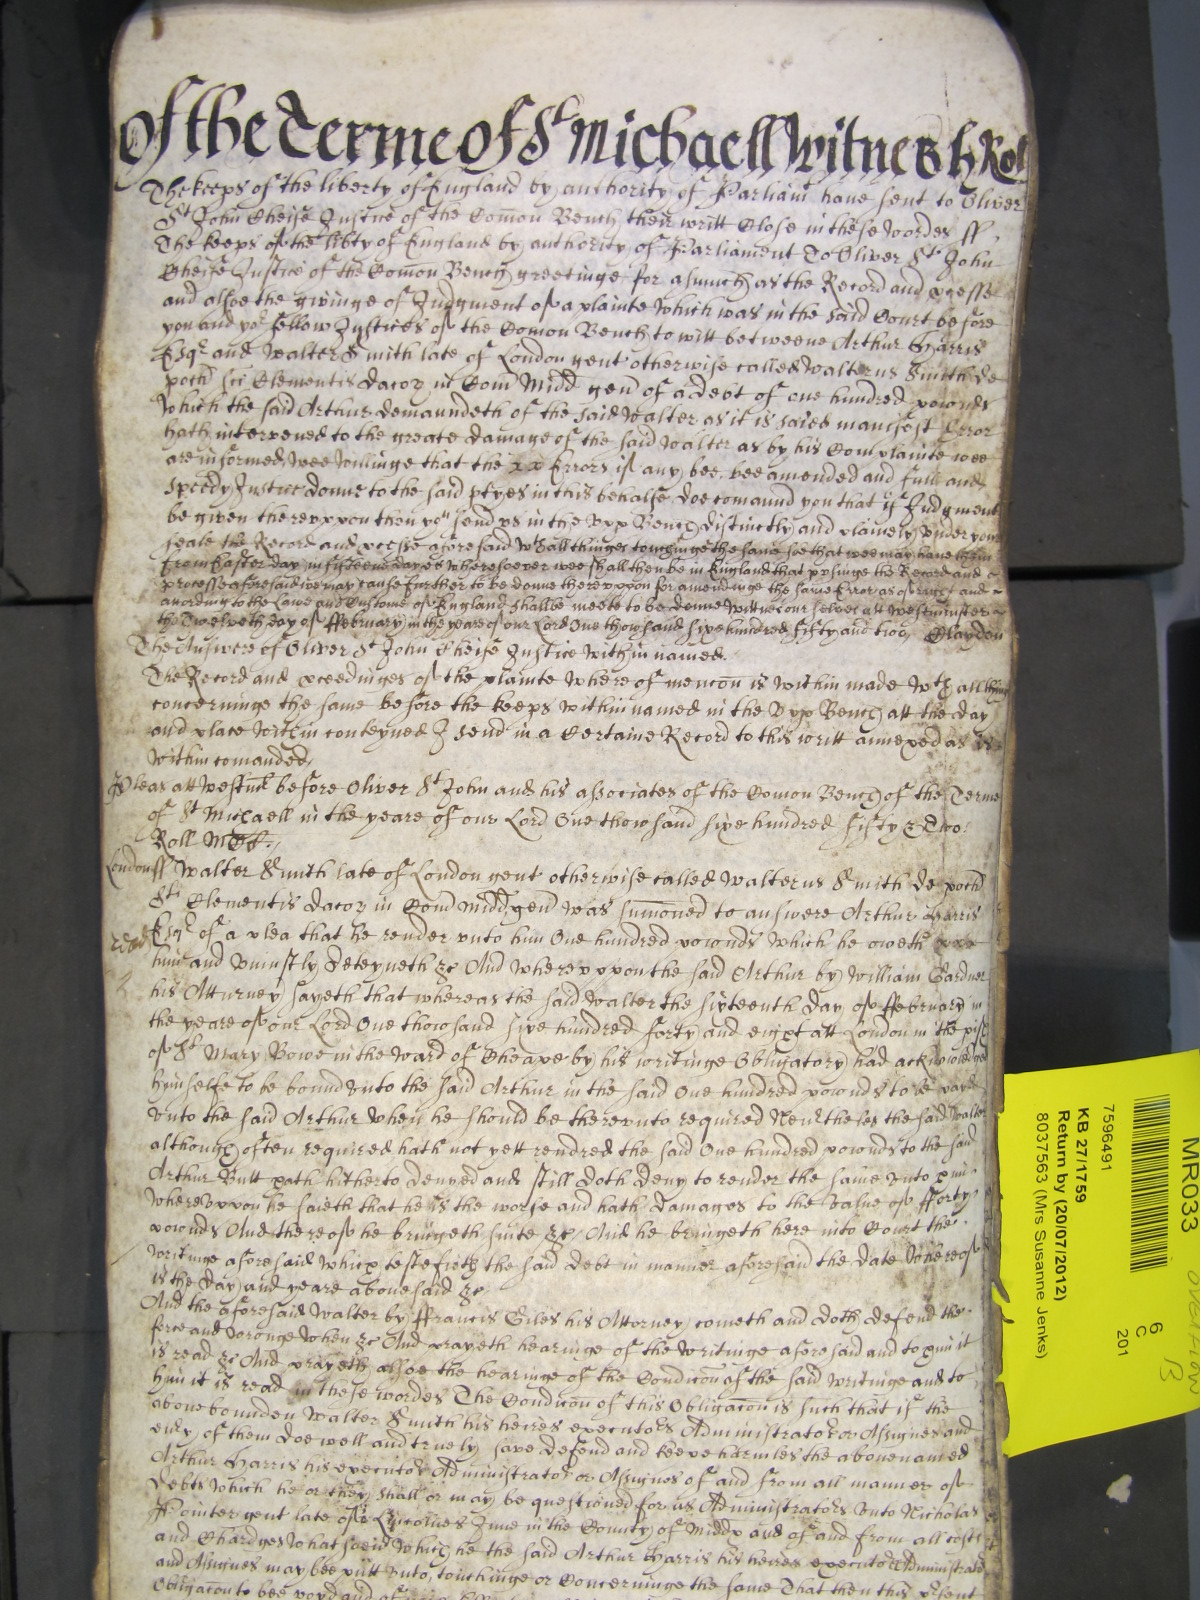 Of the Terme of St Michaell Witnes h Rol
The keeps of the liberty of England by authority of Parliamt have sent to Oliver
St John Cheife Justice of the Comon Bench their writt Close in these wordes ff
The keeps of the libty of England by authority of Parliament To Oliver St John
Cheife Justice of the Comon Bench greetinge for asmuch as the Record and pcesse
and alsoe the givinge of Judgment of a plainte which was in the said Court before
you and yor fellow Justices of the Comon Bench to witt betweene Arthur Harris
Esqr and Walter Smith late of London gent otherwise called Walterus Smith de
poch sci Clementis Dacor in Com Midd gen of a debt of one hundred pownds
which the said Arthur demaundeth of the said Walter as it is saied manifest Error
hath intervened to the greate damage of the said Walter as by his Complainte wee
are informed Wee willinge that the Errors if any bee bee amended and full and
speedy Justice donne to the said ptyes in this behalfe doe comaund you that if Judgment
be given thereuppon then you send us in the Upp Bench distinctly and plainely under your
seale the Record and pcesse aforesaid wth all thinges touchinge the same soe that wee may have them
from Easter day in fifteene dayes wheresoever wee shall then be in England that pusinge the Record and
processe aforesaid we may cause further to be donne thereuppon for amendinge the same Error as of right and
accordinge to the Lawe and Custome of England shalbe meete to be donne Wittnes our selves att Westminster
the Twelveth day of ffebruary in the yeare of our Lord One thowsand sixe hundred fifty and two Claydon
The Answere of Oliver St John Cheife Justice within named.
The Record and pceedinges of the plainte whereof mencon is within made wth all things
concerninge the same before the keeps within named in the Upp Bench att the day
and place within conteyned I send in a Certaine Record to this writt annexed as is
within comanded
Pleas att Westm before Oliver St John and his associates of the Comon Bench of the Terme
of St Michaell in the yeare of our Lord One thowsand sixe hundred fifty & Two
Roll
London ff Walter Smith late of London gent otherwise called Walterus Smith de poch
Sti Clementis Dacor in Com Midd gen was sumoned to answere Arthur Harris
Esqr of a plea that he render unto him One hundred pownds which he oweth
him and uniustly deteyneth &c And whereuppon the said Arthur by William Gardner
his Atturney sayeth that whereas the said Walter the sixteenth day of ffebruary in
the yeare of our Lord One thowsand sixe hundred forty and eight att London in the pish
of St Mary Bowe in the Ward of Cheape by his writinge Obligatory had acknowledged
himselfe to be bound unto the said Arthur in the said One hundred pownds to be payd
unto the said Arthur when he should be thereunto required Neutheles the said Walter
although often required hath not yett rendred the said One hundred pownds to the said
Arthur Butt hath hitherto denyed and still doth deny to render the same unto him
whereuppon he saieth that he is the worse and hath damages to the value of fforty
pownds And thereof he bringeth suite &c And he bringeth here into Court the
writinge aforesaid which testefieth the said debt in manner aforesaid the date whereof
is the day and yeare abovesaid &c
And the aforesaid Walter by ffrancis Giles his Attorney cometh and doth defend the
force and wronge when &c And prayeth hearinge of the writinge aforesaid and to him it
is read &c And prayeth alsoe the hearinge of the Condicon of the said writinge and to
him it is read in these wordes The Condicon of this Obligacon is such that if the
abovebounden Walter Smith his heires executors Administrators or Assignes and
evy of them doe well and truely save defend and keepe harmles the abovenamed
Arthur Harris his executors Administrators or Assignes of and from all manner of
debts which he or they shall or may be questioned for as Administrators unto Nicholas
Pointer gent late of Lincolnes Inne in the County of Middx and of and from all costs
and Chardges whatsoever which he the said Arthur Harris his heires executors Administrators
and Assignes may bee putt unto, touchinge or Concerninge the same That then this psent
Obligacon to bee voyd and of
MR033
7596491
KB 27/1759
Return by (20/07/2012)
8037563 (Mrs Susanne Jenks)
6
C
201